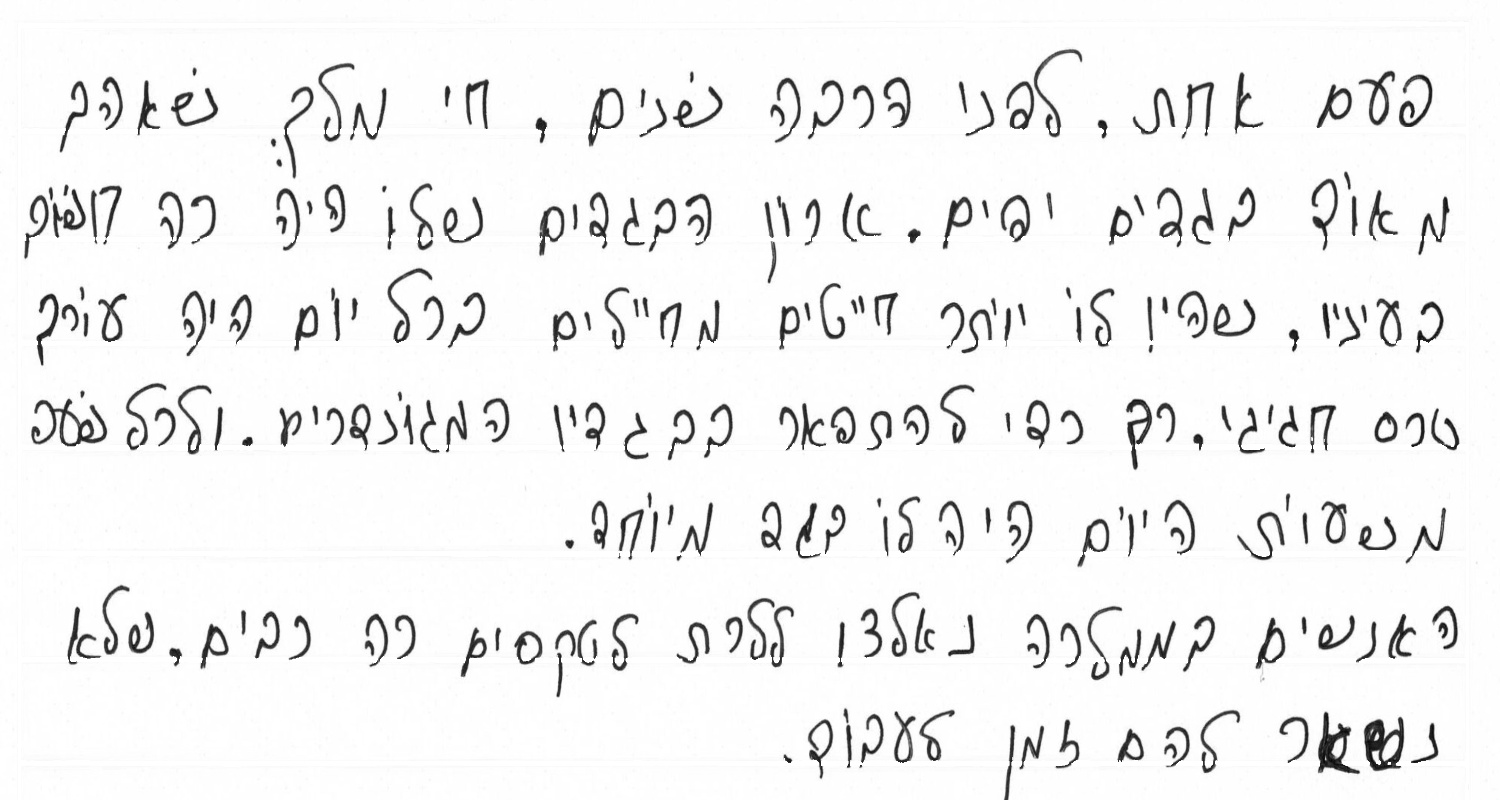 פעם אחת, לפני הרבה שנים, חי מלך: שאהב
מאוד בגדים יפים. ארון הבגדים שלו היה כה חשוב
בעיניו, שהיו לו יותר חייטים מחיילים בכל יום היה עורך
טכס חגיגי, רק כדי להתפאר בבגדיו המגונדרים. ולכל שעה
משעות היום היה לו בגד מיוחד.
האנשים בממלכה נאלצו ללכת לטקסים כה רבים, שלא
נשאר להם זמן לעבוד.